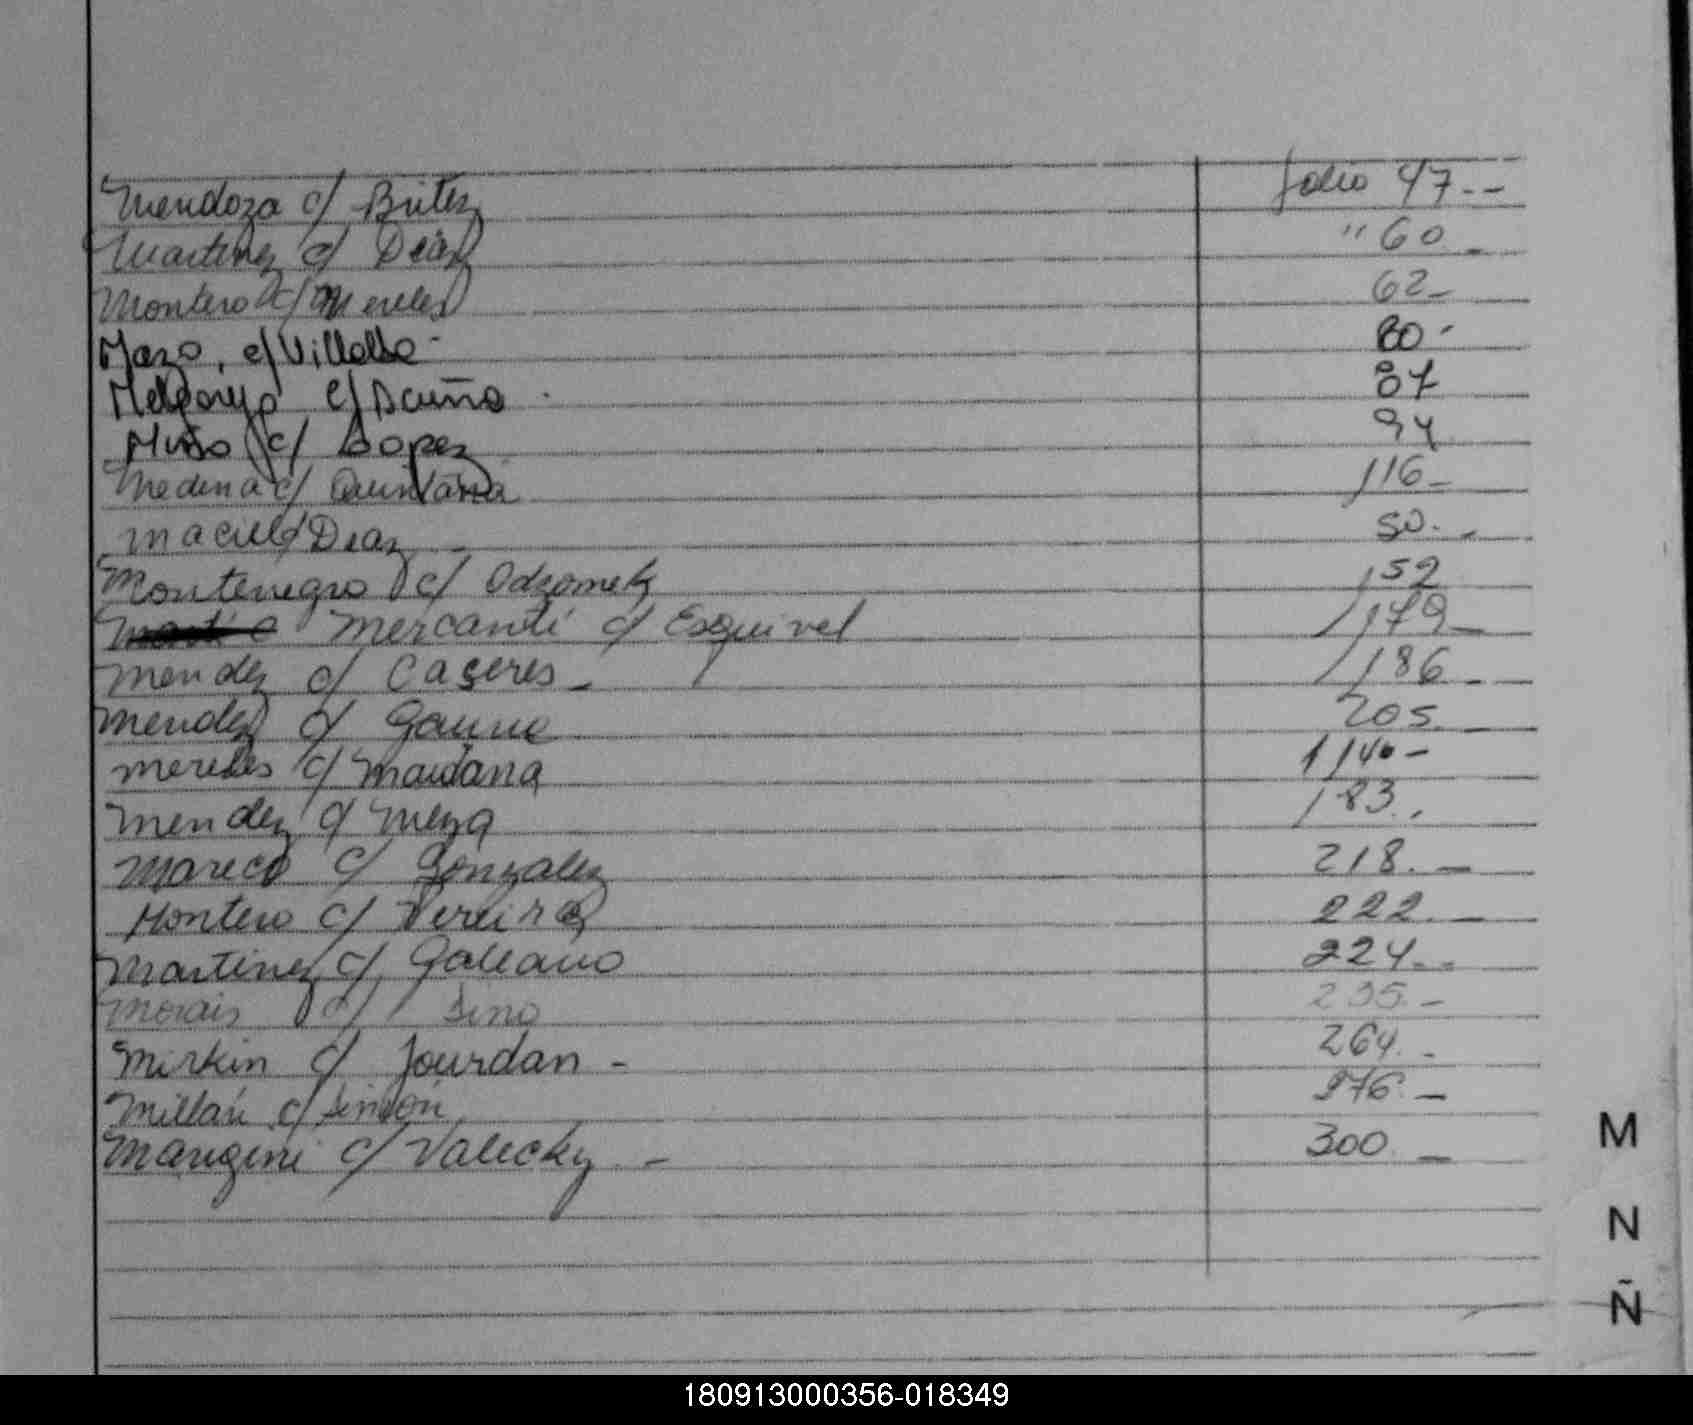 Mendoza c/ Britez folio 47--
Martinez c/ Diaz " 60 -
Montero c/ Mereles 62-
Mazo, c/ Villalba - 80-
Melgarejo c/ Acuña - 87
Miño c/ Lopez 94
Medina c/ Quintana 116-
Maciel c/ Diaz - 50. -
Montenegro c/ Odzomek 152
Mercanti c/ Esquivel 179-
Mendez c/ Caceres - 186 -
Mendez c/ Gauna 205. -
Mereles c/ Maidana 140-
Mendez c/ Meza 183..
Mareco c/ Gonzalez 218. -
Montero c/ Pereira 222. -
Martinez c/ Galeano 224--
Morais c/ 235. -
Mirkin c/ Jourdan - 264. -
Millan c/ Simon 276. -
Mangini c/ Valecky - 300. -
M
N
Ñ
180913000356-018349